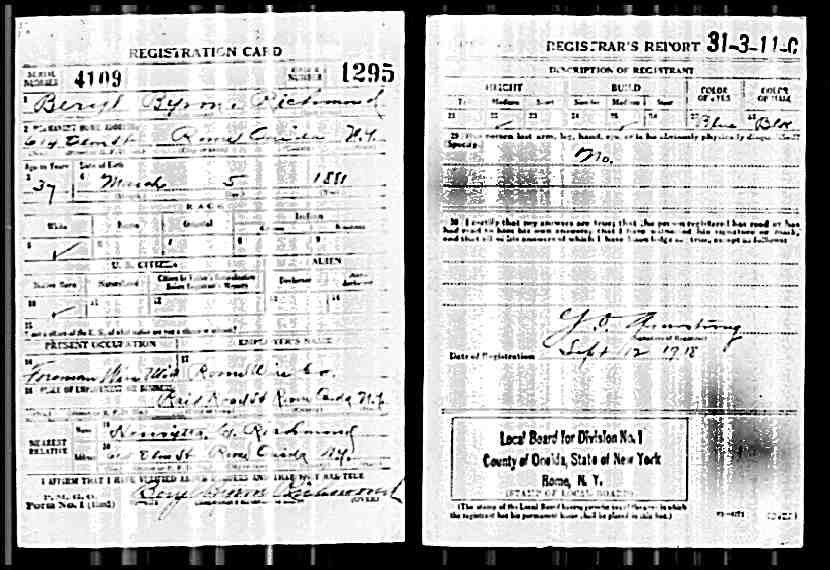 REGISTRATION CARD
SERIAL NUMBER 4109 ORDER NUMBER 1295
1 Beryl Byron Richmond
2 PERMANENT HOME ADDRESS
614 Elm St Rome Oneida N.Y.
Age in Years Date of Birth
3 37 4 March 5 1881
RACE
White Negro Oriental Indian
5 ✓ 6 7 8 9
U. S. CITIZEN ALIEN
Native Born Naturalized Citizen by Father's Naturalization Before Registrant's Majority Declarant Non-declarant
10 ✓ 11 12 13 14
15
PRESENT OCCUPATION EMPLOYER'S NAME
16 17
Foreman Wire Mill Rome Wire Co.
18 PLACE OF EMPLOYMENT OR BUSINESS
Railroad St Rome Oneida N.Y.
NEAREST RELATIVE Name 19 Richmond
Address 20 614 Elm St Rome Oneida N.Y.
I AFFIRM THAT I HAVE VERIFIED ABOVE ANSWERS AND THAT THEY ARE TRUE
P. M. G. O.
Form No. 1 (Red) Beryl Byron Richmond
(OVER)
REGISTRAR'S REPORT 31-3-11-C
DESCRIPTION OF REGISTRANT
HEIGHT BUILD COLOR OF EYES COLOR OF HAIR
Tall Medium Short Slender Medium Stout
21 22 ✓ 23 24 25 ✓ 26 27 Blue 28 Blk
29 Has person lost arm, leg, hand, eye, or is he obviously physically disqualified?
(Specify)
No.
30 I certify that my answers are true; that the person registered has read or has
had read to him his own answers; that I have witnessed his signature or mark,
and that all of his answers of which I have knowledge are true, except as follows:
Armstrong
Date of Registration Sept 12 1918
Local Board for Division No. 1
County of Oneida, State of New York
Rome, N. Y.
(STAMP OF LOCAL BOARD)
(The stamp of the Local Board having jurisdiction of the area in which
the registrant has his permanent home shall be placed in this box.)